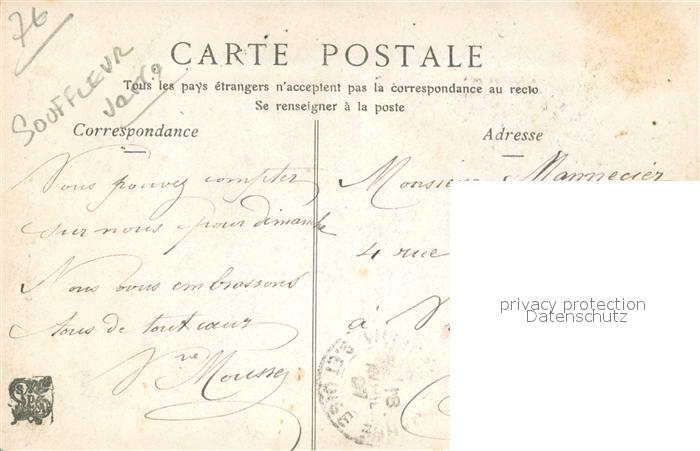 76
SOUFFLEUR
CARTE POSTALE
Tous les pays étrangers n'acceptent pas la correspondance au recto
Se renseigner à la poste
Correspondance
Vous pouvez compter
sur nous pour dimanche
Nous vous embrassons
tous de tout cœur
Vve Mousse
Adresse
Monsieur Mannecier
4 rue
à
privacy protection
Datenschutz
SEINE ET OISE